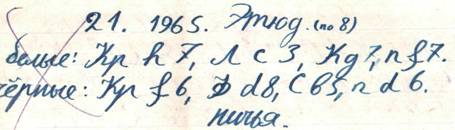 21. 1965. Этюд. (по 8)
белые: Кр h7, Л c3, К g7, п f7.
чёрные: Кр f6, Ф d8, С b5, п d6.
ничья.